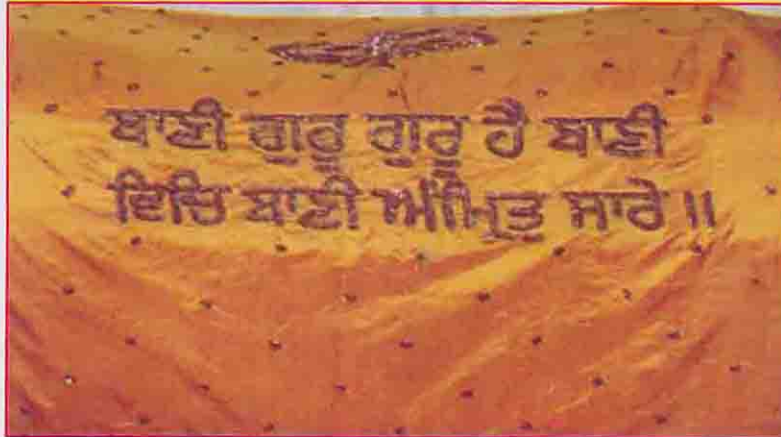 ਬਾਣੀ ਗੁਰੂ ਗੁਰੂ ਹੈ ਬਾਣੀ
ਵਿਚਿ ਬਾਣੀ ਅੰਮ੍ਰਿਤੁ ਸਾਰੇ॥